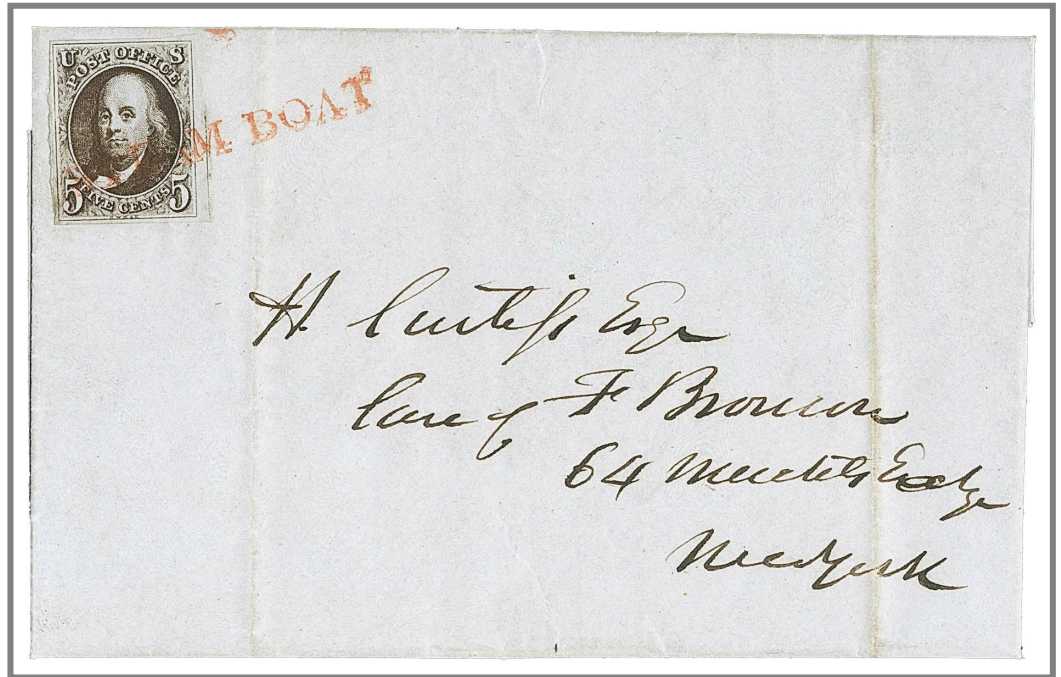 U S
POST OFFICE
5 FIVE CENTS 5
AM BOAT
H. Curtiss Esqr
Care of F Bronson
64 Merchts Exchge
New York